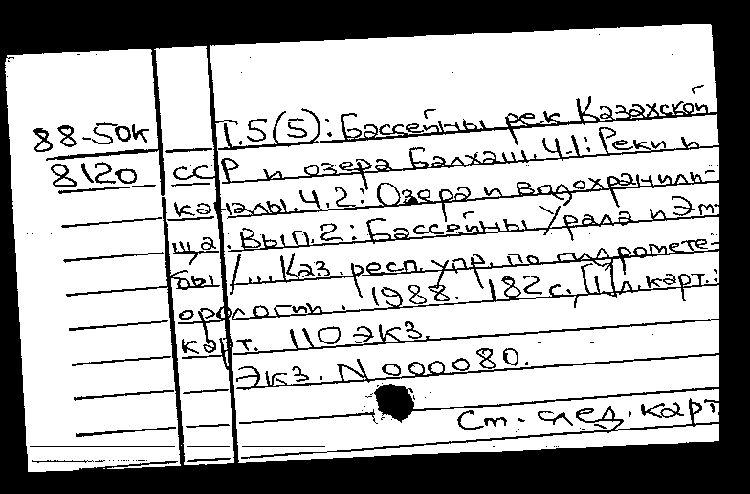 88-50к Т.5(5): Бассейны рек Казахской
8120 ССР и озера Балхаш. Ч.1: Реки и
каналы. Ч.2: Озера и водохранили-
ща. Вып.2: Бассейны Урала и Эм-
бы /... Каз. респ. упр. по гидромете-
орологии. 1988. 182 с., [1] л. карт.:
карт. 110 экз.
Экз. N 000080.
См. след. карт